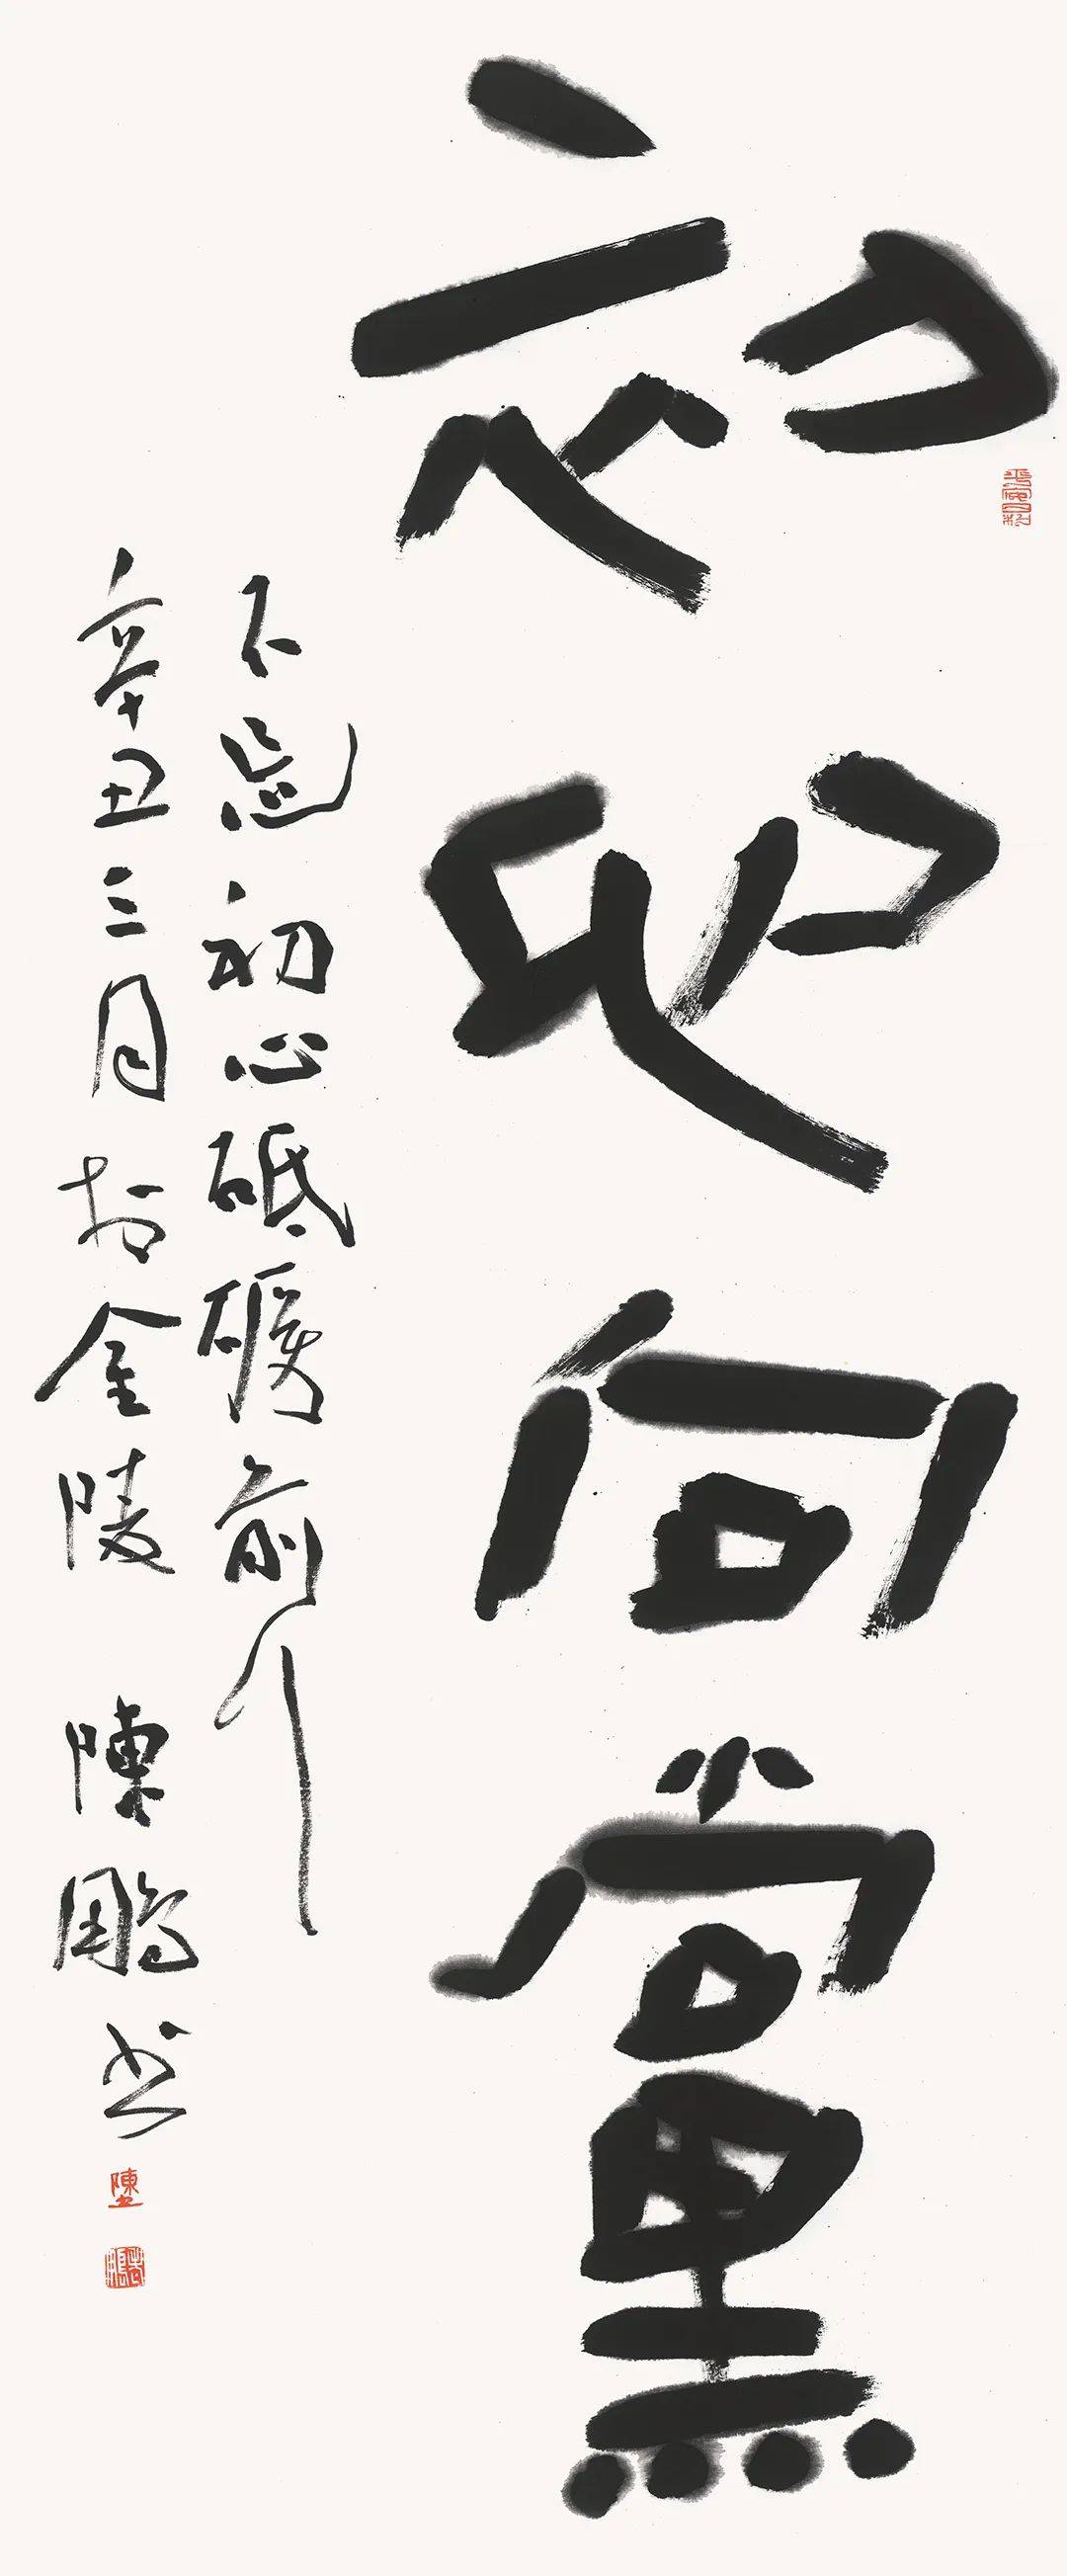 初心向黨
不忘初心砥礪前行
辛丑三月於金陵 陳鵬書